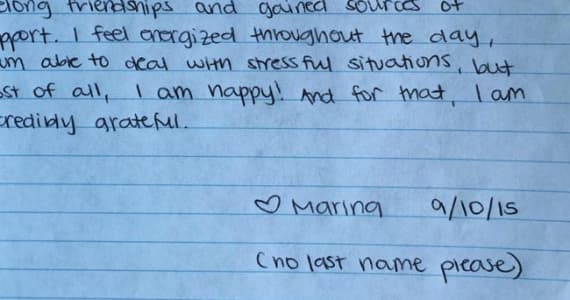 elong friendships and gained sources of
pport. I feel energized throughout the day,
um able to deal with stressful situations, but
ost of all, I am happy! And for that, I am
credibly grateful.
♡ Marina 9/10/15
(no last name please)